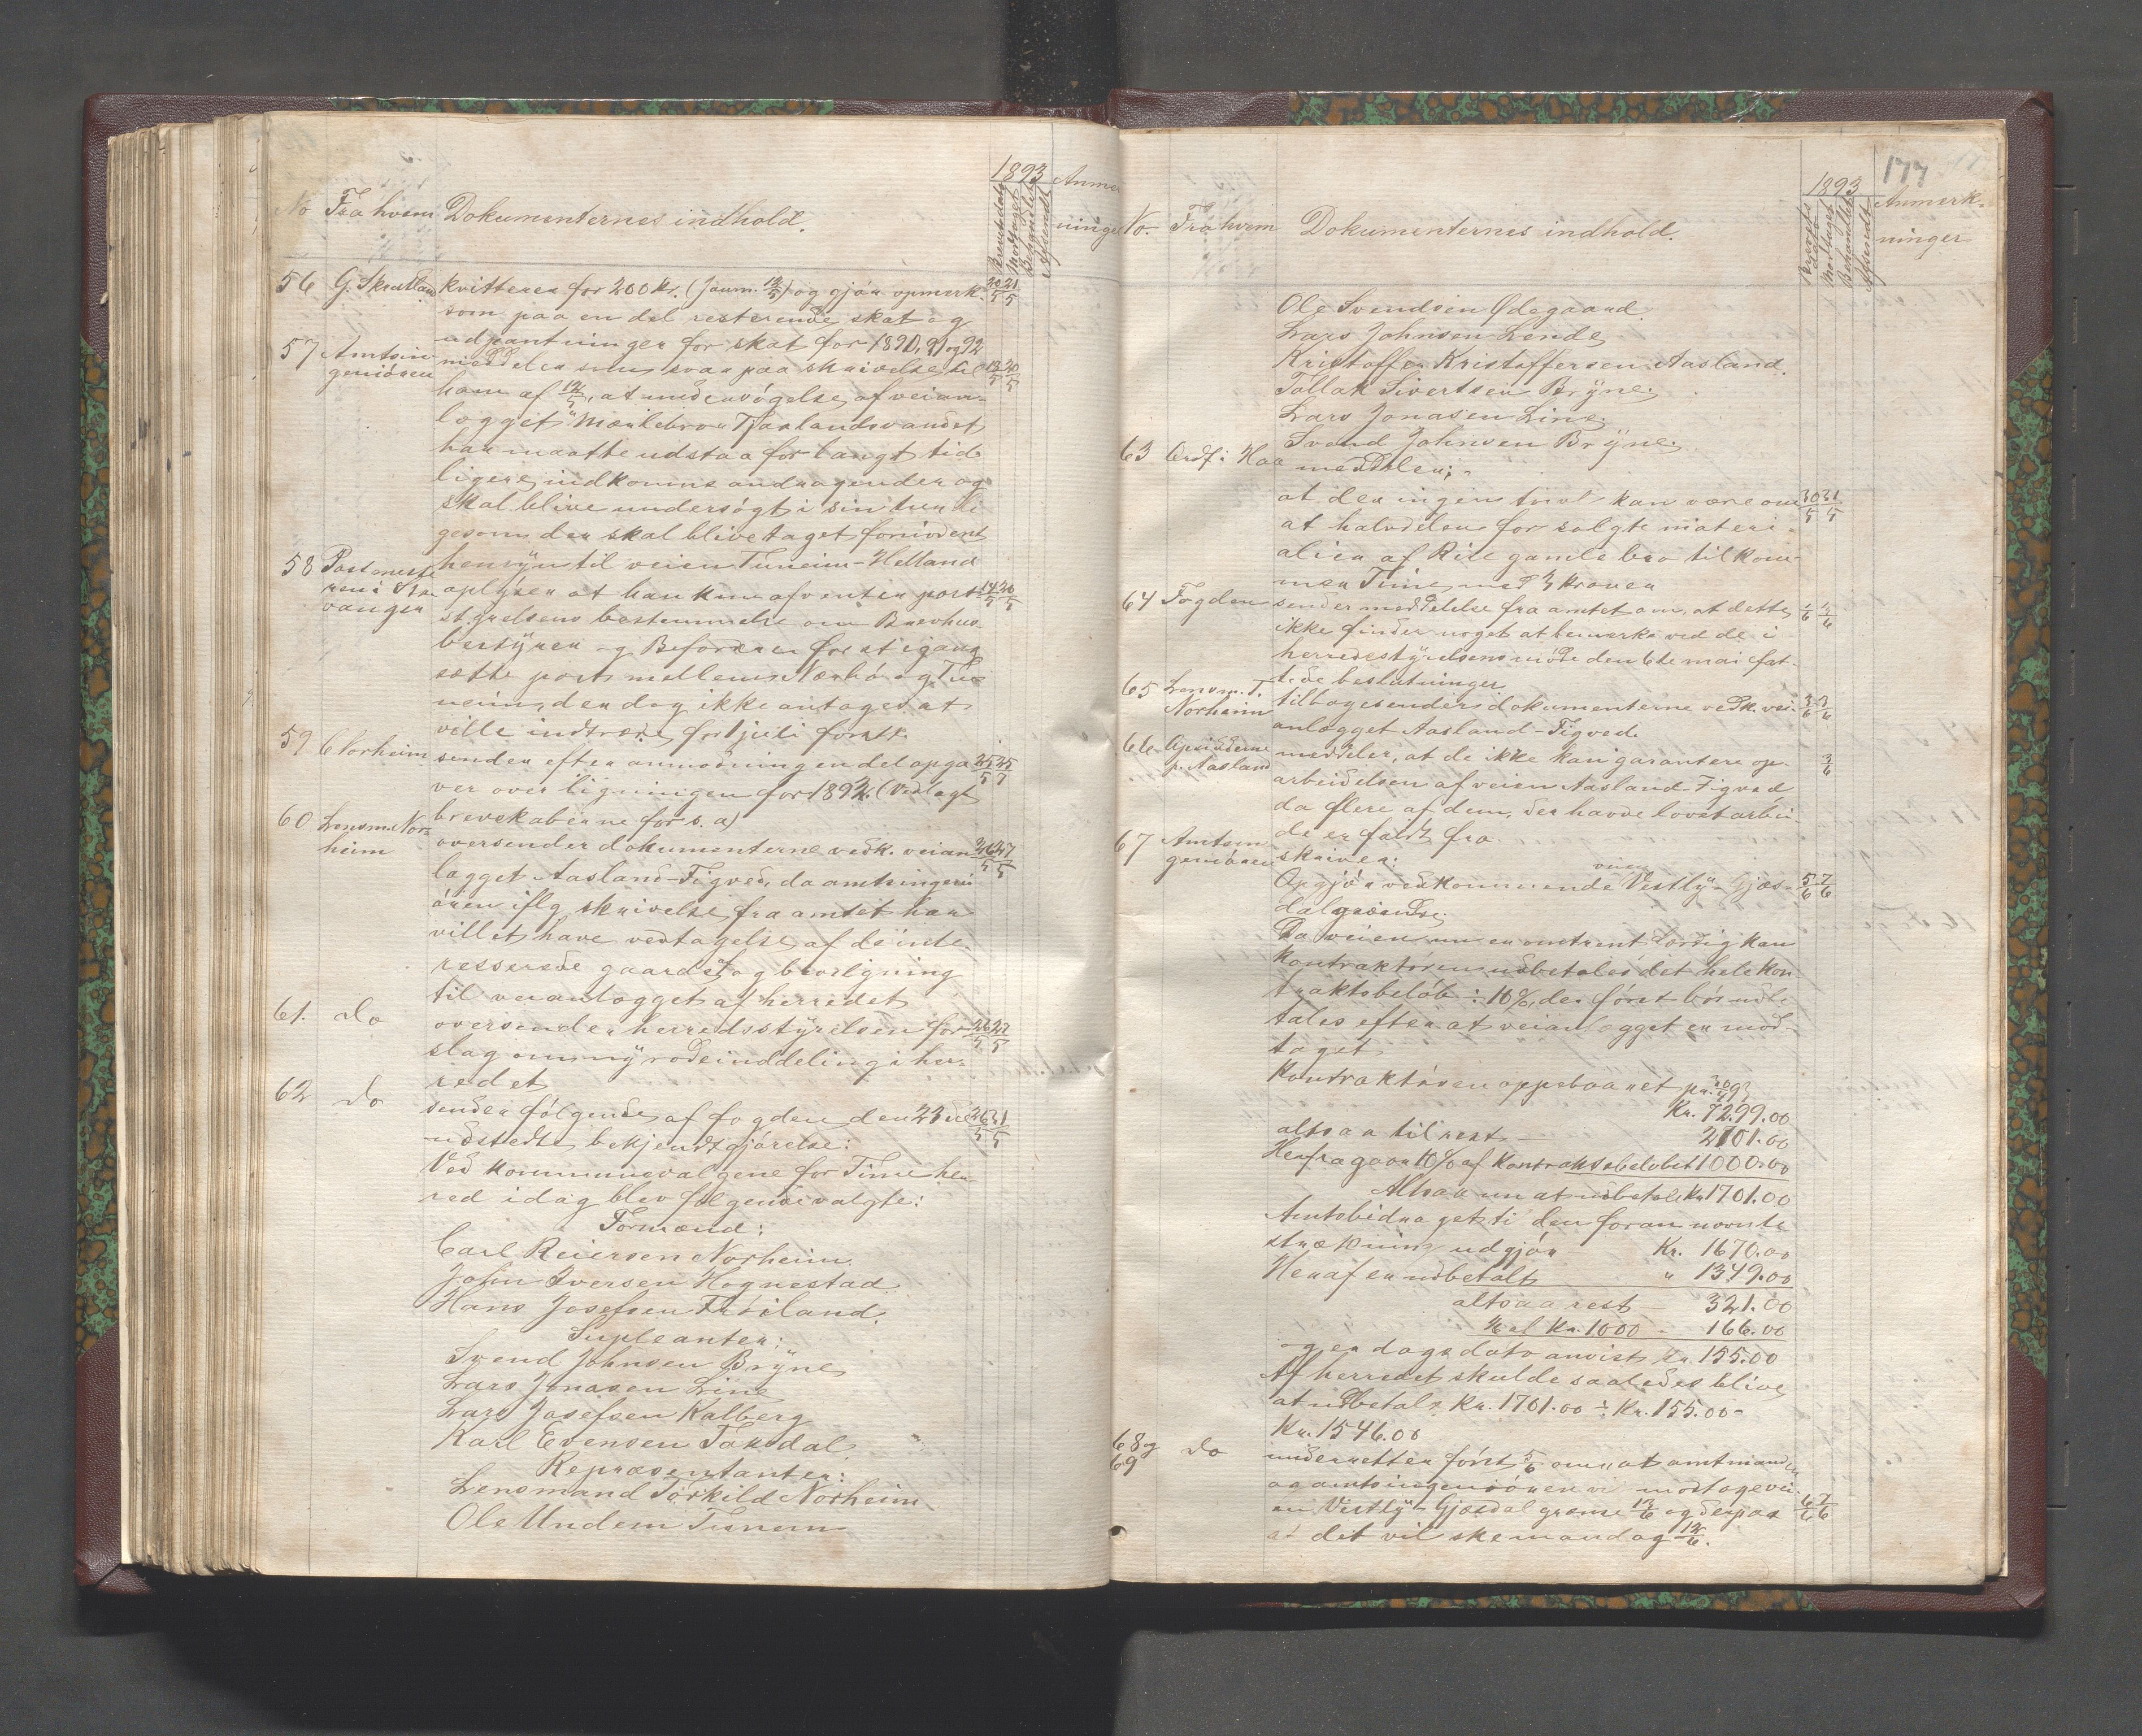 No Fra hvem Dokumenternes indhold. 1893 Brevets dato Modtaget Behandlet Afsendt Anmærkninger
56 G. Skretland kvitterer for 200 kr. (journ. 12/5) og gjør opmærk- 20/5 21/5
som paa en del resterende skat og
udpantninger for skat for 1890, 91 og 92
57 Amtsin- meddeler som svar paa skrivelse til 19/5 20/5
geniøren ham af 12/5, at undersøgelse af veian-
lægget Mærkebro - Tjaalandsvandet
har maatte udstaa for langt tid-
ligere indkomne andragender og
skal blive undersøgt i sin tur li-
gesom der skal blive taget fornødent
hensyn til veien Tunheim-Helland
58 Postmeste- oplyser at han kun afventer post- 19/5 20/5
ren i Sta-
vanger styrelsens bestemmelse om Brevhus-
bestyrer og Beforderer for at igang-
sætte post mellem Nærbø og Tu-
neim, der dog ikke antages at
ville indtræde før 1 juli førstk.
59 C Norheim sender efter anmodning en del opga- 25/5 25/5
ver over ligningen for 1892. (Vedlagt
brevskaberne for s. a)
60 Lensm. Nor- oversender dokumenterne vedk. veian- 26/5 27/5
heim lægget Aasland-Tigved, da amtsingeni-
øren iflg. skrivelse fra amtet har
villet have vedtagelse af de inte-
resserede gaarde og bevilgning
til veianlægget af herredet
61. Do oversender herredsstyrelsen for- 26/5 27/5
slag om ny rodeinddeling i her-
redet
62 Do sender følgende af fogden den 23de 26/5 31/5
udstedte bekjendtgjørelse:
Ved kommunevalgene for Time her-
red idag blev følgende valgte:
Formænd:
Carl Reiersen Norheim.
John Iversen Hognestad.
Hans Josefsen Frøiland.
Supleanter:
Svend Johnsen Bryne
Lars Jonasen Line
Lars Josefsen Kalberg
Karl Evensen Taksdal
Repræsentanter:
Lensmand Torkild Norheim
Ole Undem Tunem
177
No. Fra hvem Dokumenternes indhold. 1893 Brevets dato Modtaget Behandlet Afsendt Anmærkninger
Ole Svendsen Ødegaard.
Lars Johnsen Lende
Kristoffer Kristoffersen Aasland.
Tollak Sivertsen Bryne.
Lars Jonasen Line
Svend Johnsen Bryne.
63 Ordf. i Haa meddeler:
at der ingen tvivl kan være om 30/5 31/5
at halvdelen for solgte materi-
alier af gamle bro tilkom-
mer Time med kroner
64 Fogden sender meddelelse fra amtet om, at dette
ikke finder noget at bemerke ved de i
herredsstyrelsens møde den 6te mai fat-
tede beslutninger
65 Lensm. T. tilbagesender dokumenterne vedk. vei- 3/6 3/6
Norheim anlægget Aasland-Tigved.
66 Opsidderne meddeler, at de ikke kan garantere op- 3/6
p. Aasland arbeidelsen af veien Aasland-Tigved
da flere af dem, der havde lovet arbei-
de er faldt fra
67 Amtsin- skriver:
geniøren Opgjør vedkommende veien Vestly-Gjæs- 5/6 7/6
dal grændse.
Da veien nu er omtrent færdig kan
kontraktøren udbetales det hele kon-
traktsbeløb ÷ 10%, der først bør udbe-
tales efter at veianlægget er mod-
taget
Kontraktøren oppebaaret pr. 93
Kr. 7299.00
altsaa til rest 2701.00
Herfra gaar 10% af kontraktsbeløbet 1000.00
Altsaa nu at udbetale Kr. 1701.00
Amtsbidraget til den foran nævnte
strækning udgjør Kr. 1670.00
Heraf er udbetalt " 1349.00
altsaa rest 321.00
1/6 af Kr. 1000 - 166.00
og er dags dato anvist kr. 155.00
Af herredet skulde saaledes blive
at udbetale Kr. 1701.00 ÷ Kr. 155.00 =
Kr. 1546.00
68 og 69 Do underretter først 5/6 om at amtmanden
og amtsingeniøren vil modtage vei-
en Vestly-Gjæsdal grænse 13/6 og derpaa 6/6 7/6
at det vil ske mandag 12/6.